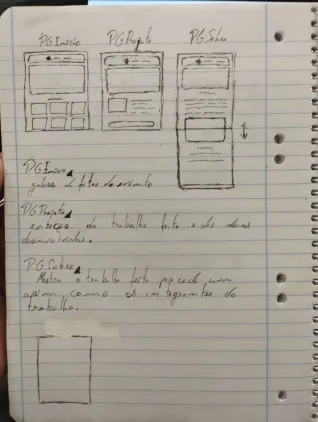 PG Inicio PG Projeto PG Sobre
PG Inicio
galeria de fotos do evento
PG Projeto
do trabalho feito e das
PG Sobre
Mostra o trabalho feito por cada um
como os integrantes do
trabalho.